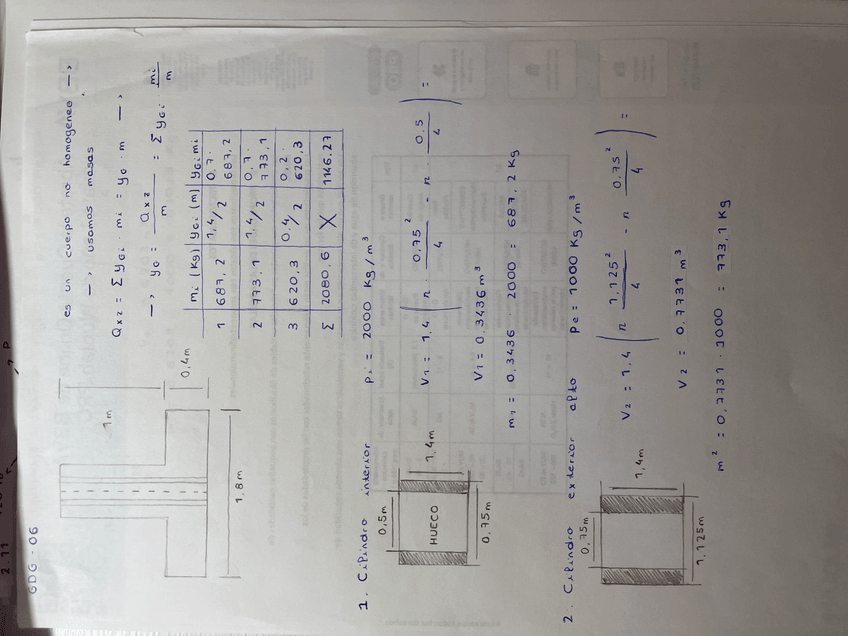 2.11
GDG - 06
1m
0,4m
1,8m
es un cuerpo no homogeneo →
→ usamos masas
Qxz = Σ yGi · mi = yG · m →
→ yG = Qxz / m = Σ yGi mi / m
mi (Kg) yGi (m) yGi mi
1 687,2 1,4/2 0,7 · 687,2
2 773,1 1,4/2 0,7 · 773,1
3 620,3 0,4/2 0,2 · 620,3
Σ 2080,6 X 1146,27
1. Cilindro interior ρi = 2000 Kg/m³
0,5m
HUECO
1,4m
0,75m
V1 = 1,4 ( π · 0,75² / 4 - π · 0,5 / 4 ) =
V1 = 0,3436 m³
m1 = 0,3436 · 2000 = 687,2 Kg
2. Cilindro exterior alto ρe = 1000 Kg/m³
0,75m
1,4m
1,125m
V2 = 1,4 ( π 1,125² / 4 - π 0,75² / 4 ) =
V2 = 0,7731 m³
m² = 0,7731 · 1000 = 773,1 Kg